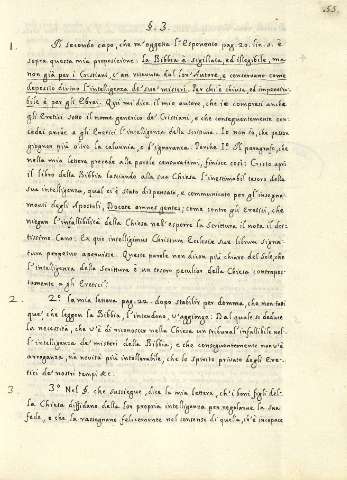 155.
§. 3.
1. Il secondo capo, che m'oggetta l'Esponente pag. 20. lin. 5. è
sopra questa mia proposizione: La Bibbia è sigillata, ed illegibile, ma
non già per i Cristiani, c'an ricevuta dal lor' Autore, e conservano come
deposito divino l'intelligenza de' suoi misteri. Per chi è chiusa, ed impenetra-
bile è per gli Ebrei. Qui mi dice il mio autore, che io compresi anche
gli Eretici sotto il nome generico de' Cristiani, e che conseguentemente con-
cedei anche a gli Eretici l'intelligenza della Scrittura. Io non so, che possa
giugner più oltre la calunnia, o l'ignoranza. Perchè 1.° Il paragrafo, che
nella mia lettera precede alle parole censuratemi, finisce così: Cristo aprì
il libro della Bibbia lasciando alla sua Chiesa l'inestimabil tesoro della
sua intelligenza, qual ci è stato dispensato, e communicato per gl'insegna-
menti degli Apostoli, Docete omnes gentes; come contro gli Eretici, che
niegan l'infallibilità della Chiesa nell'esporre la Scrittura il nota il dot-
tissimo Cano: Ex quo intelligimus Christum Ecclesiae suae librum signa-
tum perpetuo aperuisse. Queste parole non dicon più chiaro del Sole, che
l'intelligenza della Scrittura è un tesoro peculiar della Chiesa contrapos-
tamente a gli Eretici?
2. 2.° la mia lettera pag. 22. dopo stabilir per domma, che non tutti
que', che leggon la Bibbia, l'intendono, v'aggiunge: Dal quale si deduce
la necessità, che v'è di riconoscer nella Chiesa un tribunal infallibile nel-
l'intelligenza de' misteri della Bibbia; e che conseguentemente non v'è
arroganza, nè novità più intollerabile, che lo spirito privato degli Ere-
tici de' nostri tempi &c.
3. 3.° Nel §. che sussiegue, dice la mia lettera, ch'i boni figli del-
la Chiesa diffidano della lor propria intelligenza per regolarne la sua
fede, e che la rassegnano felicemente nel consenso di quella, ch'è incapace